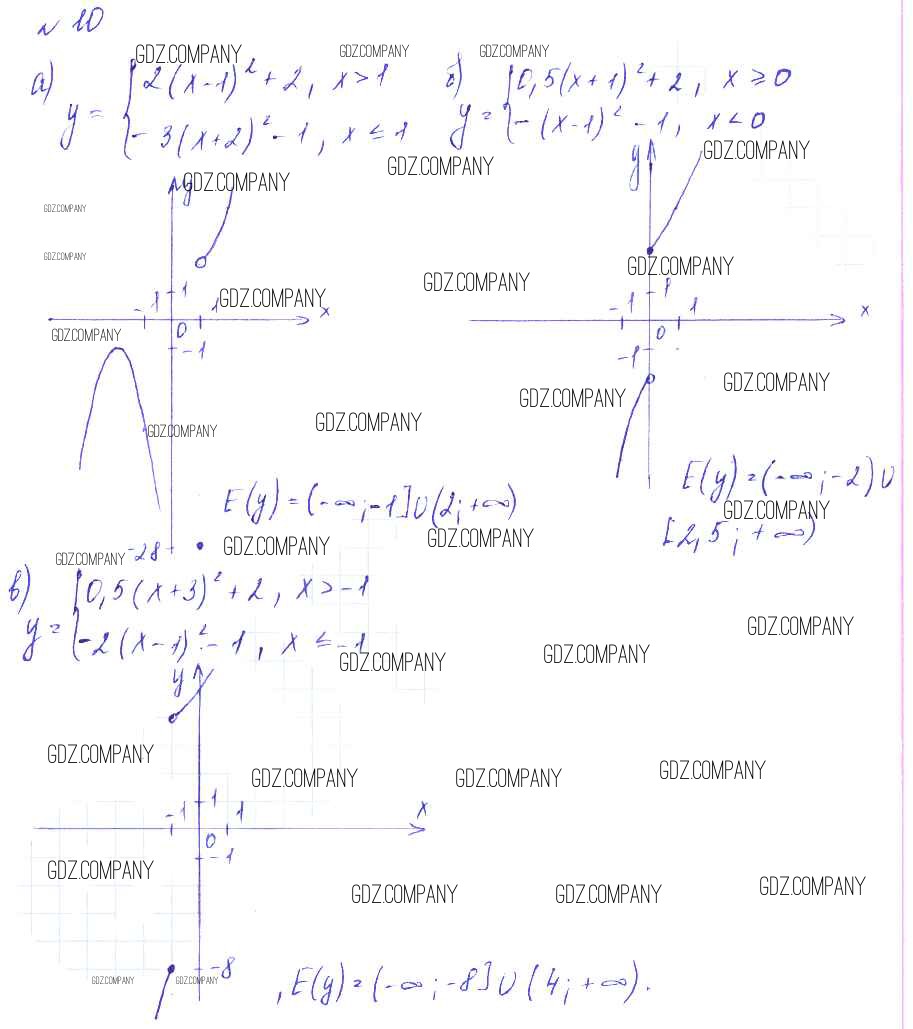 № 10
GDZ.COMPANY GDZ.COMPANY GDZ.COMPANY
а) y = { 2(x-1)² + 2, x > 1
- 3(x+2)² - 1, x ≤ 1
б) y = { 0,5(x+1)² + 2, x ≥ 0
- (x-1)² - 1, x < 0
y GDZ.COMPANY GDZ.COMPANY y GDZ.COMPANY
GDZ.COMPANY
GDZ.COMPANY
1 GDZ.COMPANY GDZ.COMPANY GDZ.COMPANY
-1 1 x -1 1 1 x
GDZ.COMPANY 0 0
-1 -1
GDZ.COMPANY GDZ.COMPANY
GDZ.COMPANY GDZ.COMPANY
E(y) = (-∞; -1] U (2; +∞)
E(y) = (-∞; -2) U
GDZ.COMPANY
[2,5; +∞)
-28 GDZ.COMPANY GDZ.COMPANY
GDZ.COMPANY
в) y = { 0,5(x+3)² + 2, x > -1
-2(x-1)² - 1, x ≤ -1
GDZ.COMPANY
GDZ.COMPANY GDZ.COMPANY
y
GDZ.COMPANY GDZ.COMPANY GDZ.COMPANY GDZ.COMPANY
-1 1 1 x
0
-1
GDZ.COMPANY GDZ.COMPANY GDZ.COMPANY GDZ.COMPANY
-8
GDZ.COMPANY GDZ.COMPANY
, E(y) = (-∞; -8] U (4; +∞).